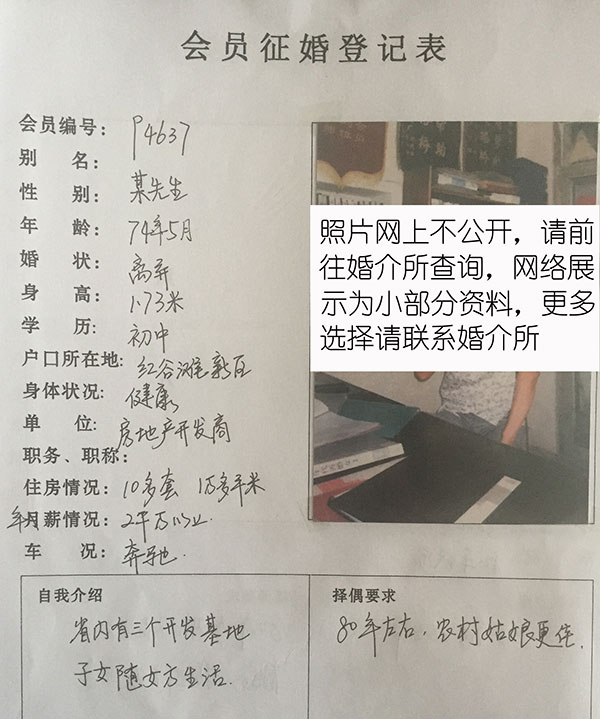 会员征婚登记表
会员编号: P4637
别 名:
性 别: 某先生
年 龄: 74年5月
婚 状: 离异
身 高: 1.73米
学 历: 初中
户口所在地: 红谷滩新区
身体状况: 健康
单 位: 房地产开发商
职务、职称:
住房情况: 10多套 1万多平米
年月薪情况: 2千万以上.
车 况: 奔驰.
照片网上不公开，请前
往婚介所查询，网络展
示为小部分资料，更多
选择请联系婚介所
自我介绍
省内有三个开发基地
子女随女方生活.
择偶要求
80年左右，农村姑娘更佳.